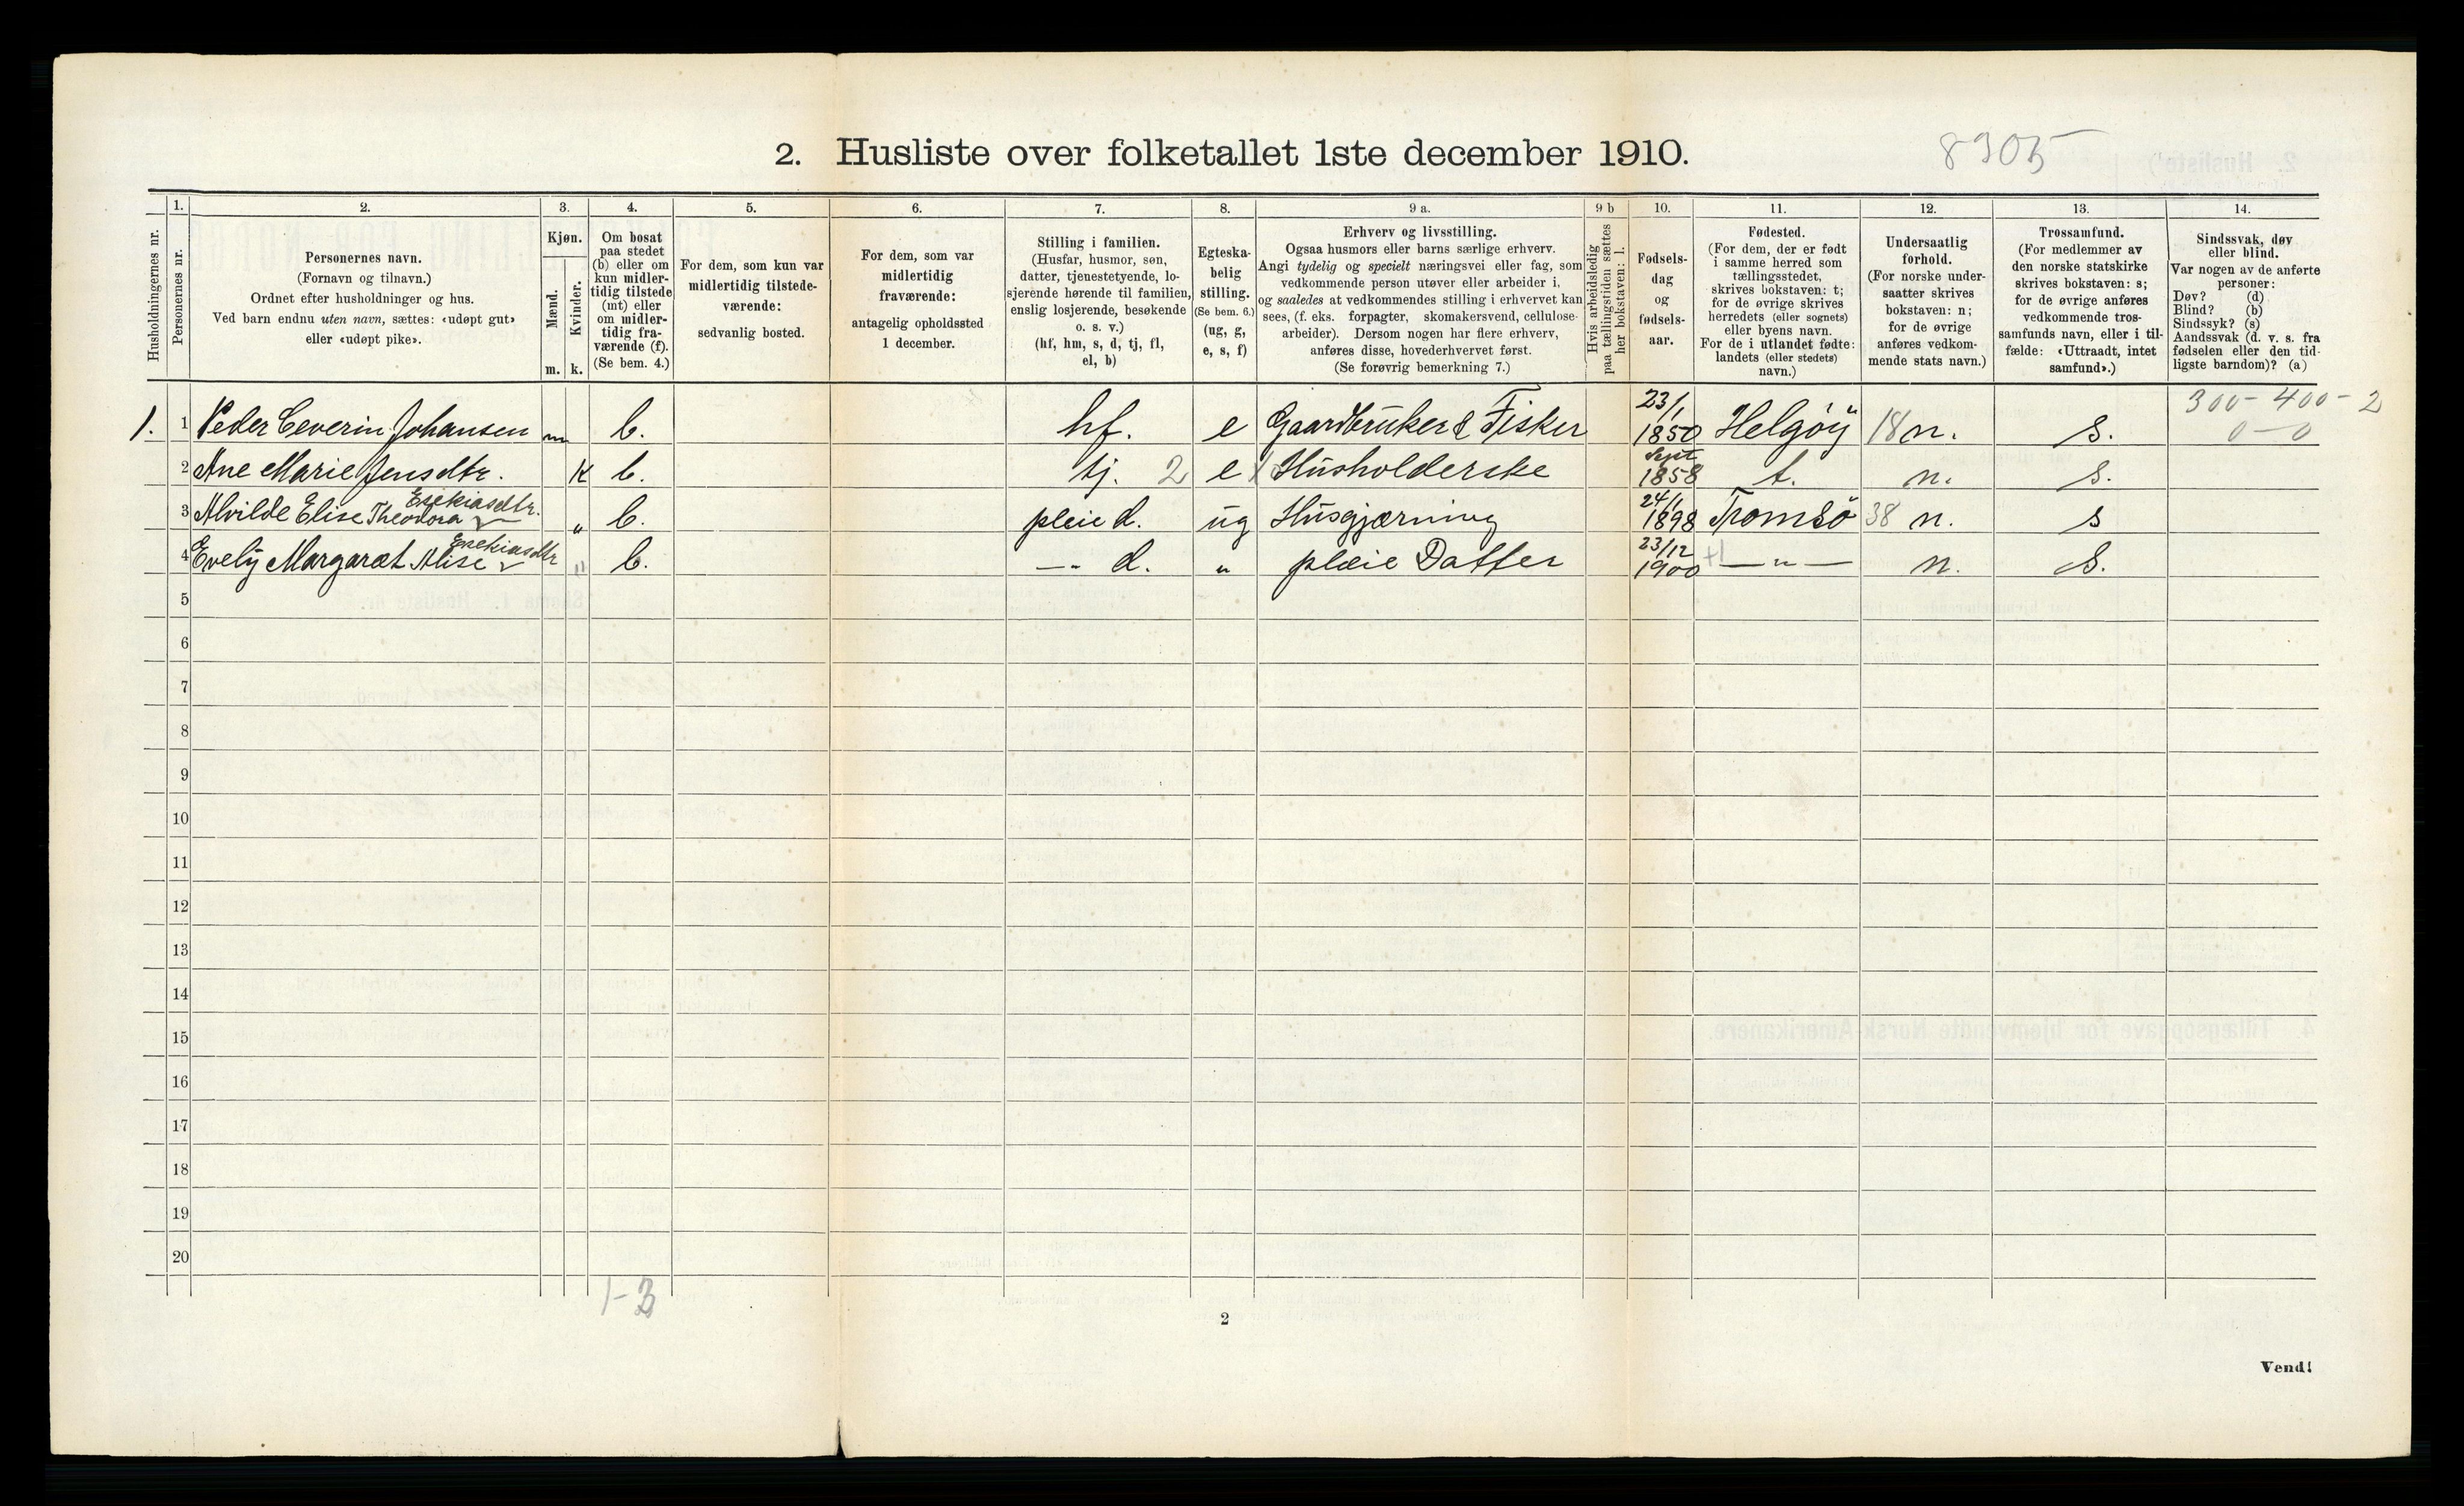 2. Husliste over folketallet 1ste december 1910.
8905
Husholdningernes nr.
1.
Personernes nr.
2.
Personernes navn.
(Fornavn og tilnavn.)
Ordnet efter husholdninger og hus.
Ved barn endnu uten navn, sættes: «udøpt gut»
eller «udøpt pike».
3.
Kjøn.
Mænd.
Kvinder.
m. k.
4.
Om bosat
paa stedet
(b) eller om
kun midler-
tidig tilstede
(mt) eller
om midler-
tidig fra-
værende (f).
(Se bem. 4.)
5.
For dem, som kun var
midlertidig tilstede-
værende:
sedvanlig bosted.
6.
For dem, som var
midlertidig
fraværende:
antagelig opholdssted
1 december.
7.
Stilling i familien.
(Husfar, husmor, søn,
datter, tjenestetyende, lo-
sjerende hørende til familien,
enslig losjerende, besøkende
o. s. v.)
(hf, hm, s, d, tj, fl,
el, b)
8.
Egteska-
belig
stilling.
(Se bem. 6.)
(ug, g,
e, s, f)
9 a.
Erhverv og livsstilling.
Ogsaa husmors eller barns særlige erhverv.
Angi tydelig og specielt næringsvei eller fag, som
vedkommende person utøver eller arbeider i,
og saaledes at vedkommendes stilling i erhvervet kan
sees, (f. eks. forpagter, skomakersvend, cellulose-
arbeider). Dersom nogen har flere erhverv,
anføres disse, hovederhvervet først.
(Se forøvrig bemerkning 7.)
9 b
Hvis arbeidsledig
paa tællingstiden sættes
her bokstaven: l.
10.
Fødsels-
dag
og
fødsels-
aar.
11.
Fødested.
(For dem, der er født
i samme herred som
tællingsstedet,
skrives bokstaven: t;
for de øvrige skrives
herredets (eller sognets)
eller byens navn.
For de i utlandet fødte:
landets (eller stedets)
navn.)
12.
Undersaatlig
forhold.
(For norske under-
saatter skrives
bokstaven: n;
for de øvrige
anføres vedkom-
mende stats navn.)
13.
Trossamfund.
(For medlemmer av
den norske statskirke
skrives bokstaven: s;
for de øvrige anføres
vedkommende tros-
samfunds navn, eller i til-
fælde: «Uttraadt, intet
samfund».)
14.
Sindssvak, døv
eller blind.
Var nogen av de anførte
personer:
Døv? (d)
Blind? (b)
Sindssyk? (s)
Aandssvak (d. v. s. fra
fødselen eller den tid-
ligste barndom)? (a)
300-400-2
0-0
1. 1 Peder Ceverin Johansen m b. hf. e Gaardbruker & Fisker 23/1 1850 Helgöy 18 n. s.
2 Ane Marie Jensdtr. K b. tj. 2 e Husholderske Sept 1858 t. n. s.
3 Alvilde Elise Theodora Esekiasdtr. „ b. pleie d. ug Husgjærning 24/1 1898 Tromsö 38 n. s
4 Evely Margaræt Alise Esekiasdtr „ b. -- d. „ plæie Datter 23/12 1900 +1 — „ — n. S.
5
6
7
8
9
10
11
12
13
14
15
16
17
18
19
20
1-3
2
Vend!